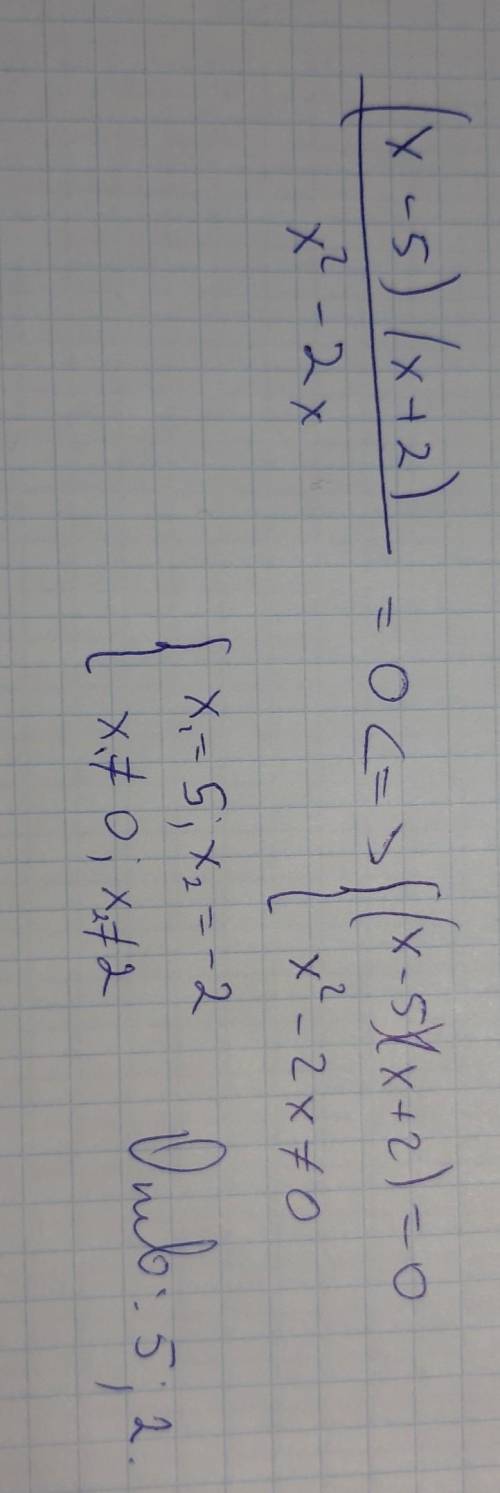 (x - 5) (x + 2)
x² - 2x
= 0 <=> { (x - 5)(x + 2) = 0
x² - 2x ≠ 0
{ x₁ = 5; x₂ = -2
x₁ ≠ 0; x₂ ≠ 2
Отв: 5; 2.